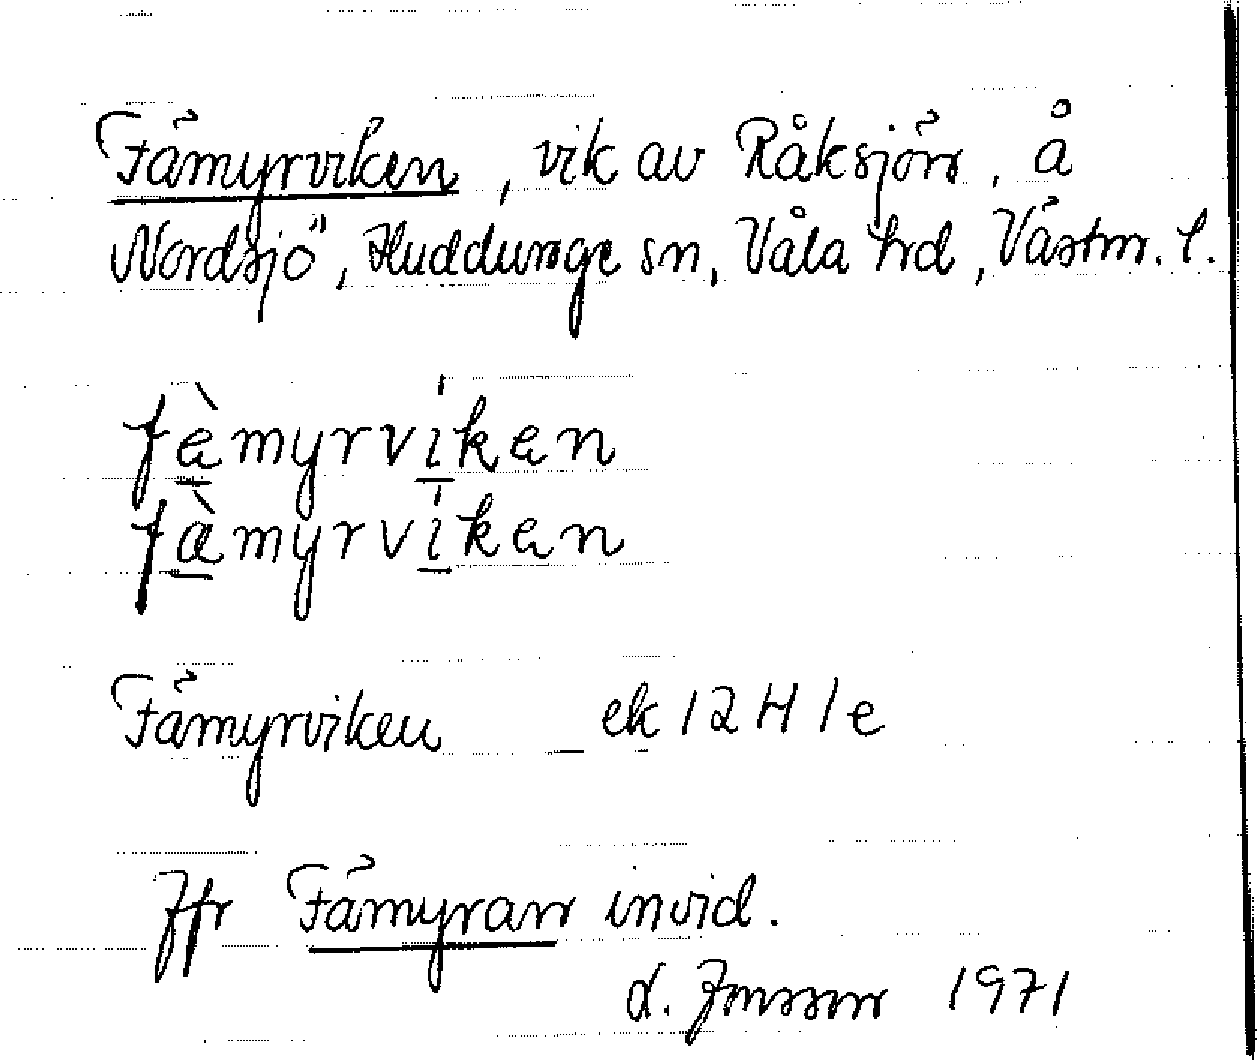 Fämyrviken, vik av Råksjön, å
Nordsjö, Huddunge sn, Våla hd, Västm. l.
fèmyrvíken
fàmyrvíken
Fämyrviken ek 12H 1e
Jfr Fämyran invid.
L. Jonsson 1971